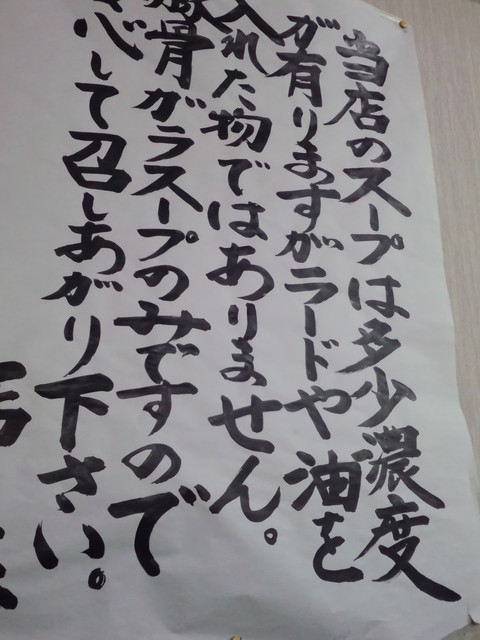 当店のスープは多少濃度
が有りますがラードや油を
入れた物ではありません。
豚骨ガラスープのみですので
安心して召しあがり下さい。